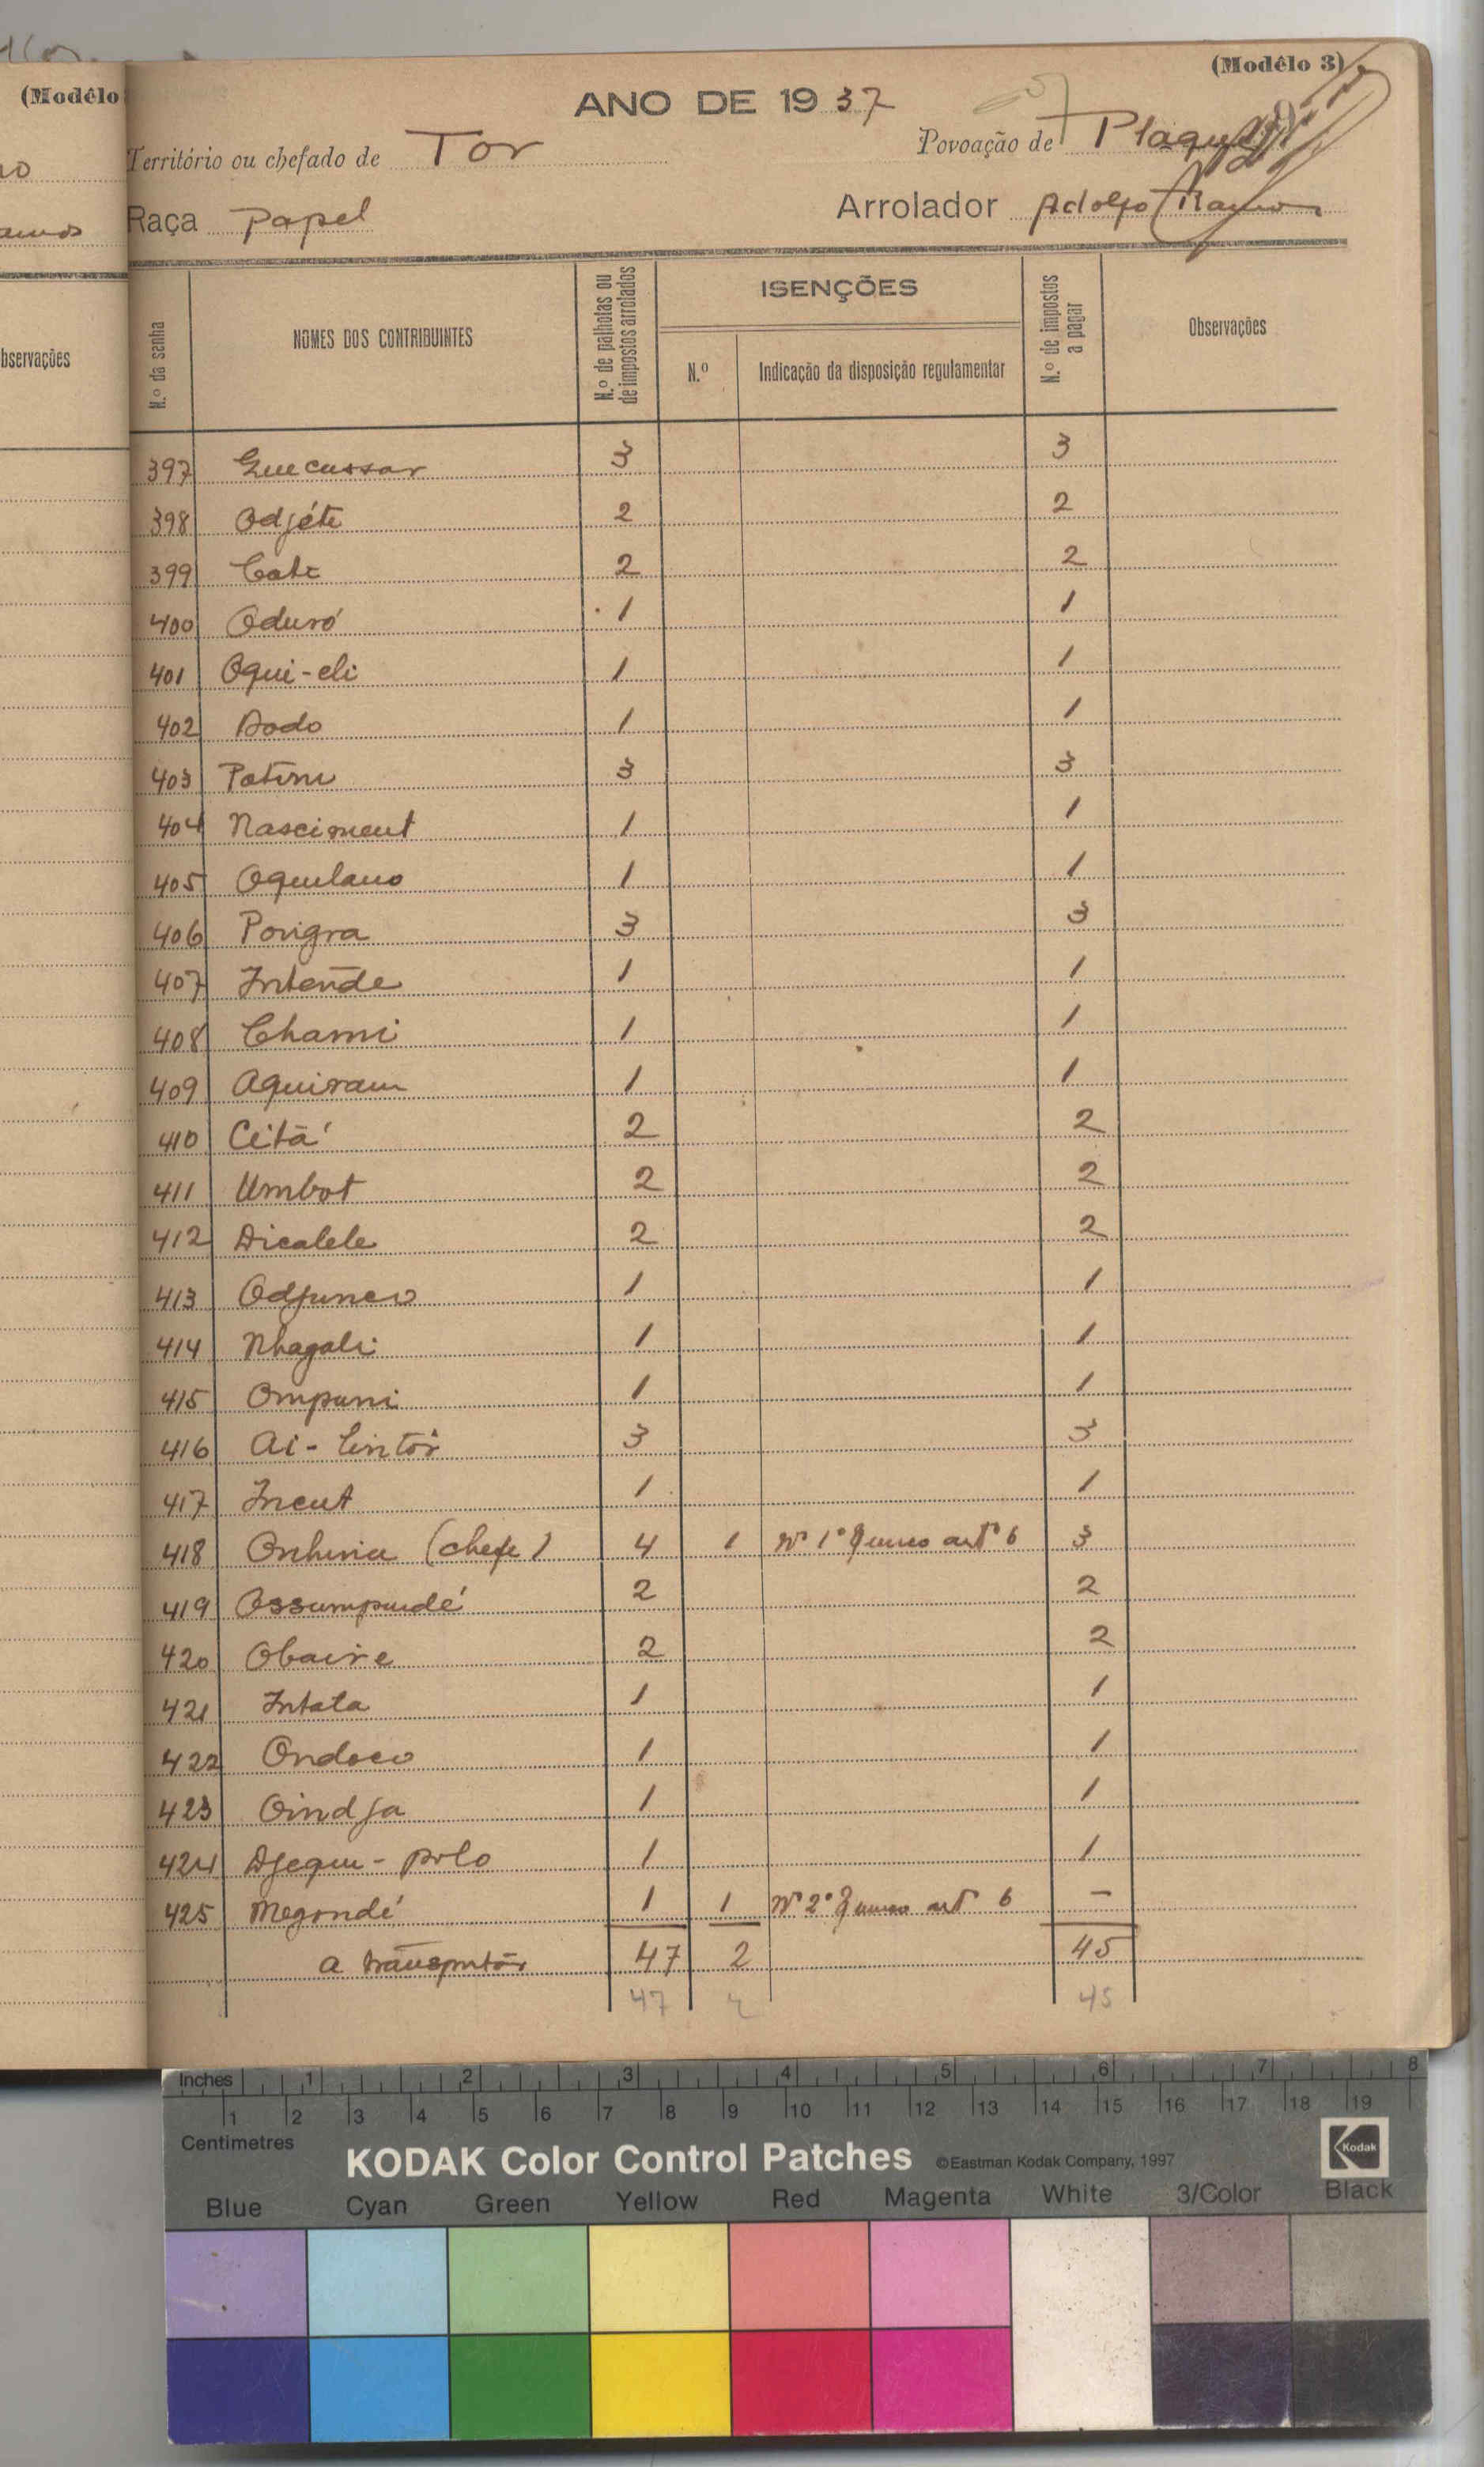 (Modêlo
bservações
(Modêlo 3)
ANO DE 1937
Território ou chefado de Tor
Povoação de
Raça Papel
Arrolador Adolfo Ramos
N.º da senha
NOMES DOS CONTRIBUINTES
N.º de palhotas ou de impostos arrolados
ISENÇÕES
N.º
Indicação da disposição regulamentar
N.º de impostos a pagar
Observações
397 Quecussar 3 3
398 Odjéte 2 2
399 Cate 2 2
400 Oduró 1 1
401 Oqui-eli 1 1
402 Dodo 1 1
403 Potimi 3 3
404 Nasciment 1 1
405 Oquilano 1 1
406 Povigra 3 3
407 Intende 1 1
408 Chami 1 1
409 Aquiram 1 1
410 Citá 2 2
411 Umbot 2 2
412 Dicalele 2 2
413 Odjunco 1 1
414 Nhagali 1 1
415 Ompuni 1 1
416 Ai-Lintor 3 3
417 Incut 1 1
418 (chefe) 4 1 Nº 1º § unico artº 6 3
419 Ossumpudé 2 2
420 Obaire 2 2
421 Intata 1 1
422 Ondoco 1 1
423 Oindja 1 1
424 Djequi-polo 1 1
425 Megondé 1 1 Nº 2º § unico artº 6 —
a transportar 47 2 45
47 2 45
Inches 1 2 3 4 5 6 7 8
1 2 3 4 5 6 7 8 9 10 11 12 13 14 15 16 17 18 19
Centimetres
KODAK Color Control Patches ©Eastman Kodak Company, 1997 Kodak
Blue Cyan Green Yellow Red Magenta White 3/Color Black